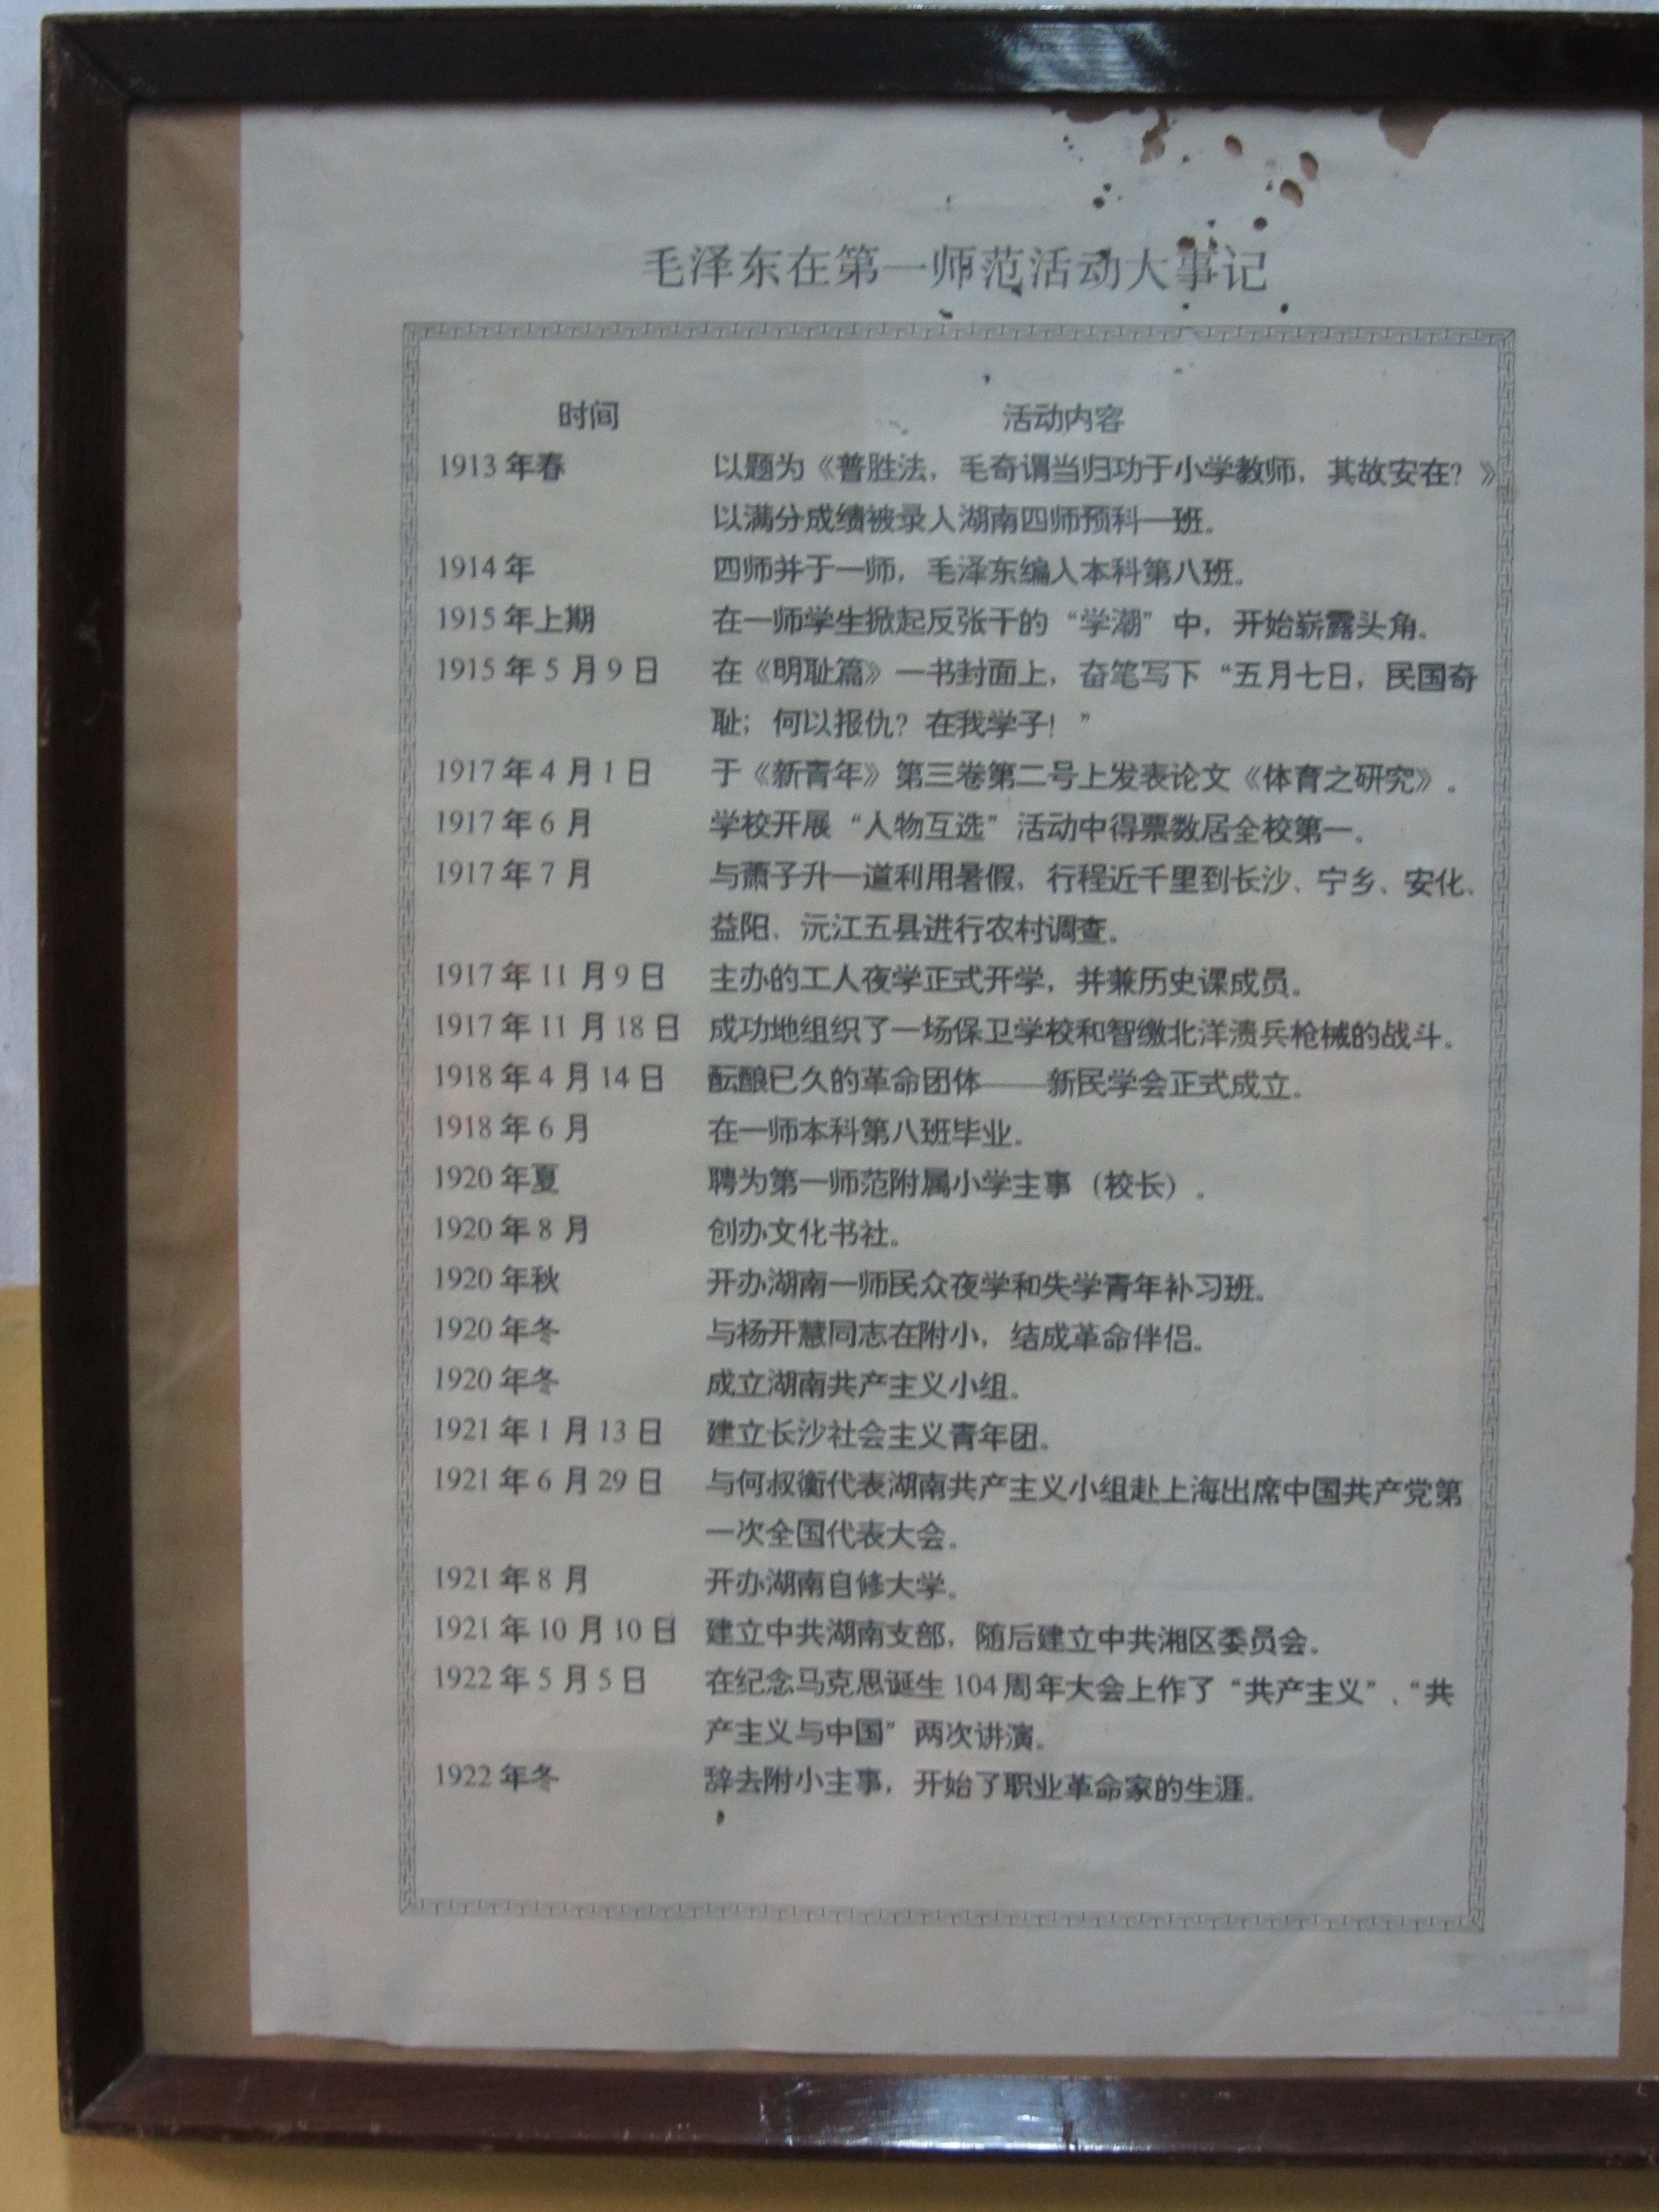 毛泽东在第一师范活动大事记
时间 活动内容
1913年春 以题为《普胜法，毛奇谓当归功于小学教师，其故安在？》
以满分成绩被录入湖南四师预科一班。
1914年 四师并于一师，毛泽东编入本科第八班。
1915年上期 在一师学生掀起反张干的“学潮”中，开始崭露头角。
1915年5月9日 在《明耻篇》一书封面上，奋笔写下“五月七日，民国奇
耻；何以报仇？在我学子！”
1917年4月1日 于《新青年》第三卷第二号上发表论文《体育之研究》。
1917年6月 学校开展“人物互选”活动中得票数居全校第一。
1917年7月 与萧子升一道利用暑假，行程近千里到长沙、宁乡、安化、
益阳、沅江五县进行农村调查。
1917年11月9日 主办的工人夜学正式开学，并兼历史课成员。
1917年11月18日 成功地组织了一场保卫学校和智缴北洋溃兵枪械的战斗。
1918年4月14日 酝酿已久的革命团体——新民学会正式成立。
1918年6月 在一师本科第八班毕业。
1920年夏 聘为第一师范附属小学主事（校长）。
1920年8月 创办文化书社。
1920年秋 开办湖南一师民众夜学和失学青年补习班。
1920年冬 与杨开慧同志在附小，结成革命伴侣。
1920年冬 成立湖南共产主义小组。
1921年1月13日 建立长沙社会主义青年团。
1921年6月29日 与何叔衡代表湖南共产主义小组赴上海出席中国共产党第
一次全国代表大会。
1921年8月 开办湖南自修大学。
1921年10月10日 建立中共湖南支部，随后建立中共湘区委员会。
1922年5月5日 在纪念马克思诞生104周年大会上作了“共产主义”、“共
产主义与中国”两次讲演。
1922年冬 辞去附小主事，开始了职业革命家的生涯。